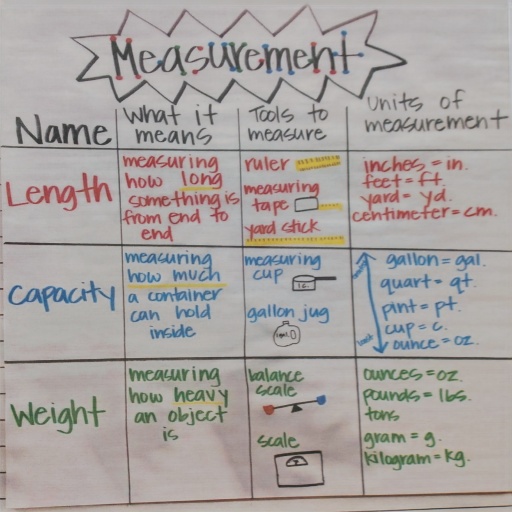 Measurement
Name
What it
means
Tools to
measure
Units of
measurement
Length
measuring
how long
something is
from end to
end
ruler
measuring
tape
yard stick
inches = in.
feet = ft.
yard = yd.
centimeter = cm.
Capacity
measuring
how much
a container
can hold
inside
measuring
cup
gallon jug
gallon = gal.
quart = qt.
pint = pt.
cup = c.
ounce = oz.
Weight
measuring
how heavy
an object
is
balance
scale
scale
ounces = oz.
pounds = lbs.
tons
gram = g.
kilogram = kg.